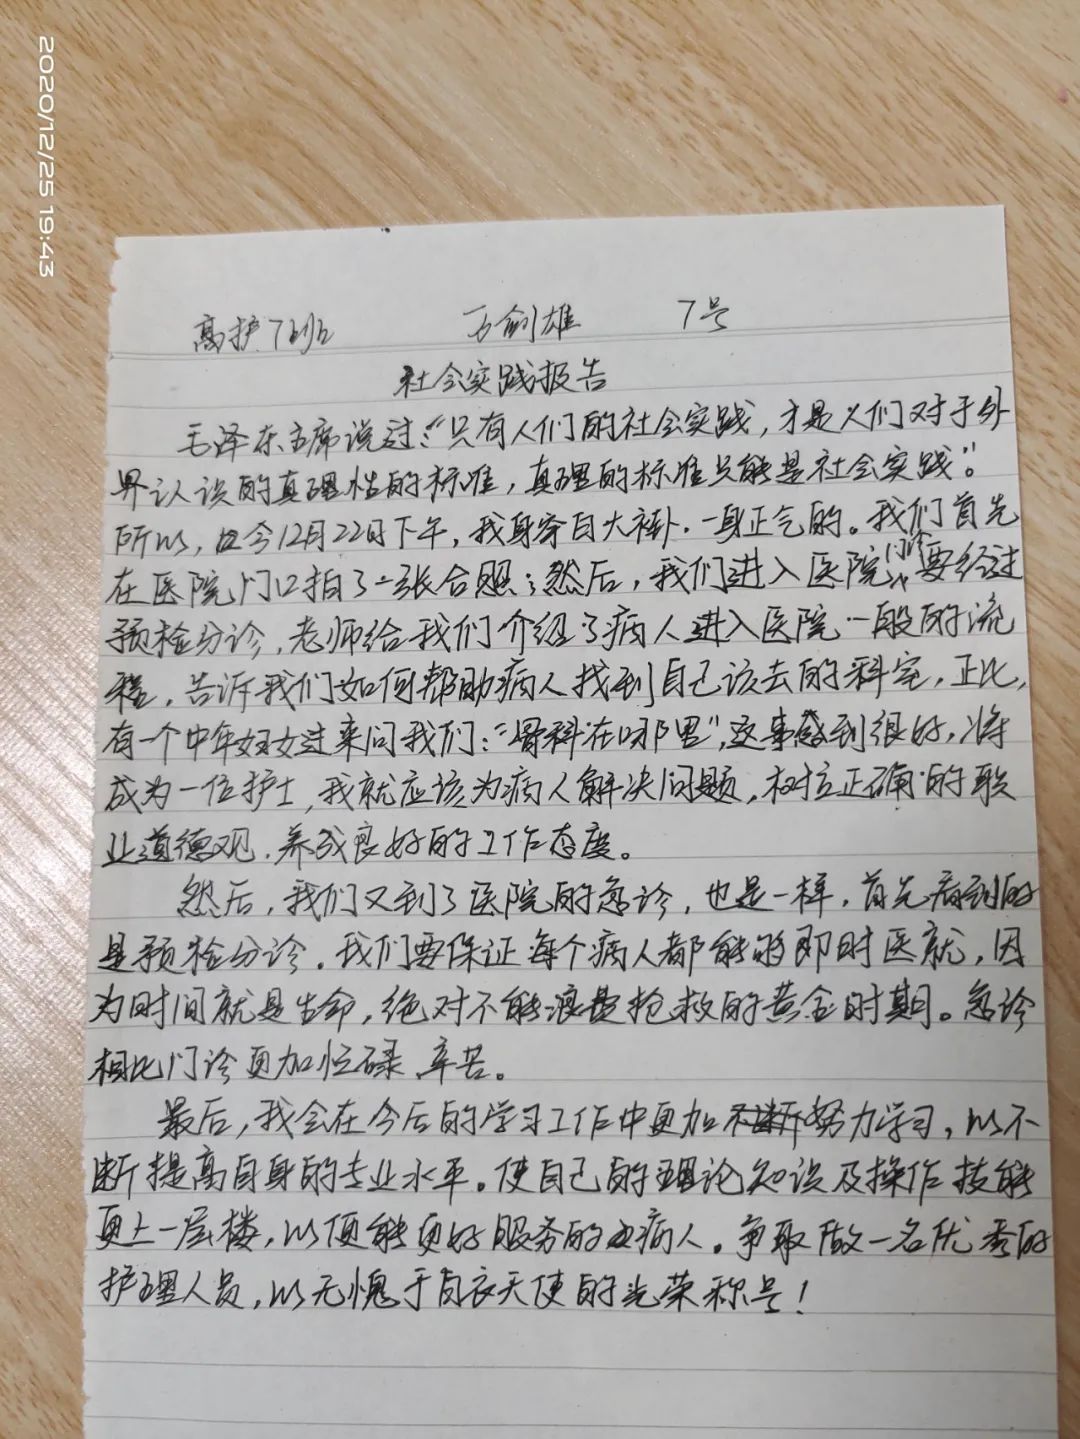 2020/12/25 19:43
高护7班 万剑雄 7号
社会实践报告
毛泽东主席说过:“只有人们的社会实践,才是人们对于外
界认识的真理性的标准,真理的标准只能是社会实践”。
所以,在今12月22日下午,我身穿白大褂.一身正气的。我们首先
在医院门口拍了一张合照;然后,我们进入医院门诊要经过
预检分诊,老师给我们介绍了病人进入医院一般的流
程,告诉我们如何帮助病人找到自己该去的科室,正比,
有一个中年妇女过来问我们:“骨科在哪里”,这事感到很好,将
成为一位护士,我就应该为病人解决问题,树立正确的职
业道德观.养成良好的工作态度。
然后,我们又到了医院的急诊,也是一样,首先看到的
是预检分诊.我们要保证每个病人都能够即时医就,因
为时间就是生命,绝对不能浪费抢救的黄金时期。急诊
相比门诊更加忙碌,辛苦。
最后,我会在今后的学习工作中更加努力学习,以不
断提高自身的专业水平。使自己的理论知识及操作技能
更上一层楼,以便能更好服务的病人.争取做一名优秀的
护理人员,以无愧于白衣天使的光荣称号!